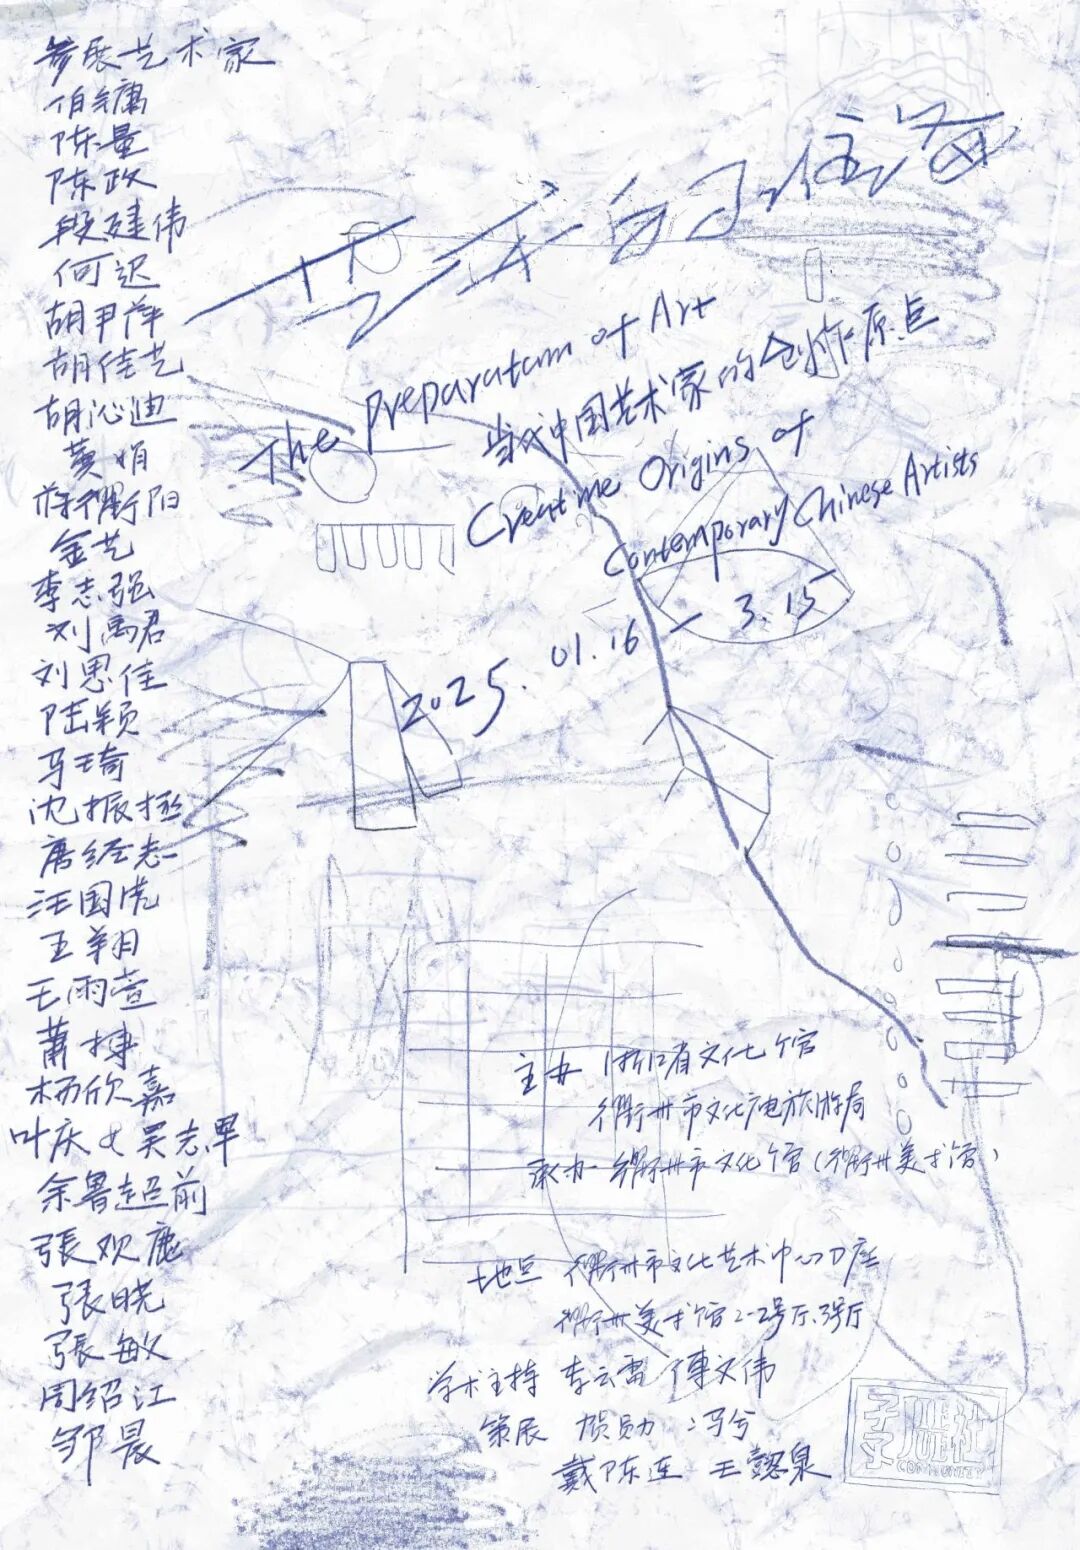 参展艺术家
伯庸
陈量
陈政
段建伟
何迟
胡尹萍
胡佳艺
胡沁迪
黄娟
蒋衢阳
金艺
李志强
刘禹君
刘思佳
陆颖
马琦
沈振拯
唐经志
汪国虎
王翔
王雨萱
萧搏
杨欣嘉
叶庆 & 吴志军
余鲁超前
張观鹿
張晓
張敏
周绍江
邹晨
艺术的准备
The Preparatum of Art
当代中国艺术家的创作原点
Creatime Origins of
Contemporary Chinese Artists
2025.01.16 — 3.15
主办 浙江省文化馆
衢州市文化广电旅游局
承办 衢州市文化馆(衢州美术馆)
地点 衢州市文化艺术中心D座
衢州美术馆2-2号厅、3号厅
学术主持 李云雷 傅文伟
策展 贺勋 冯兮
戴陈连 王懿泉
COMMUNITY